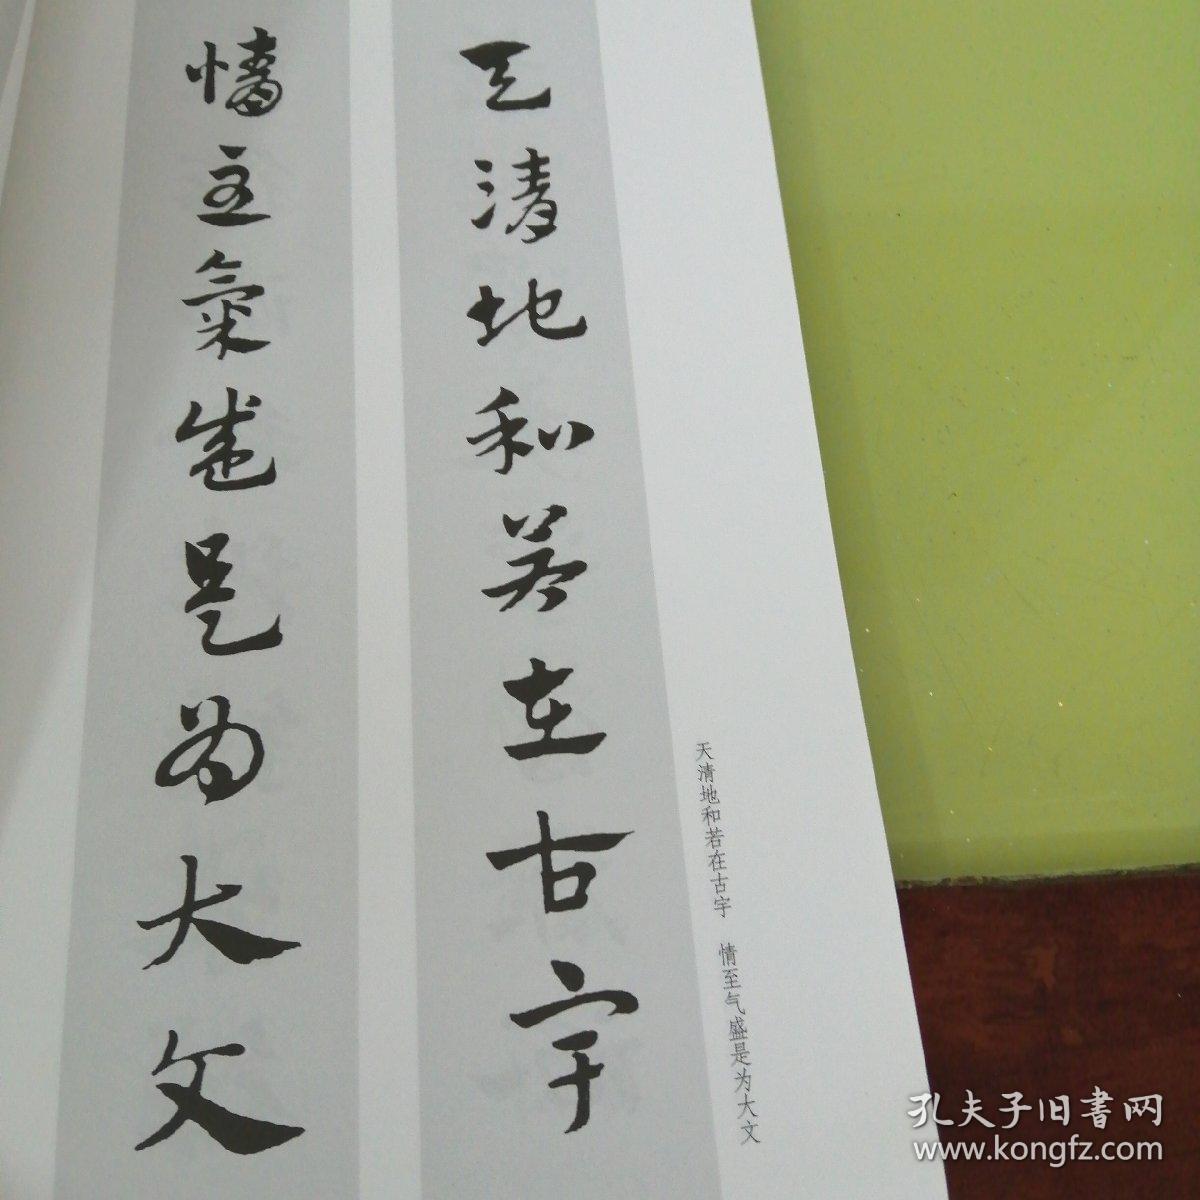 天清地和若在古宇
情至氣盛是為大文
天清地和若在古宇 情至气盛是为大文
孔夫子旧書网
www.kongfz.com